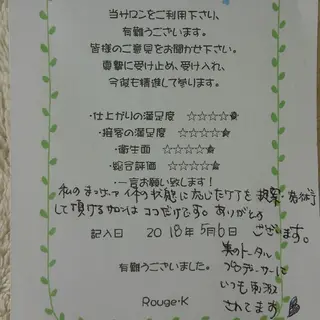 当サロンをご利用下さり、
有難うございます。
皆様のご意見をお聞かせ下さい。
真摯に受け止め、受け入れ、
今後も精進して参ります。
・仕上がりの満足度 ☆☆☆☆★
・接客の満足度 ☆☆☆☆★
・衛生面 ☆☆☆☆★
・総合評価 ☆☆☆☆★
・一言お願い致します！
私のまつ毛、体の状態に応じたケアを提案・施術
して頂けるサロンはココだけです。ありがとう
ございます。
記入日 2018年5月6日
美のトータル
プロデューサーに
いつも刺激
されてます
有難うございました。
Rouge・K